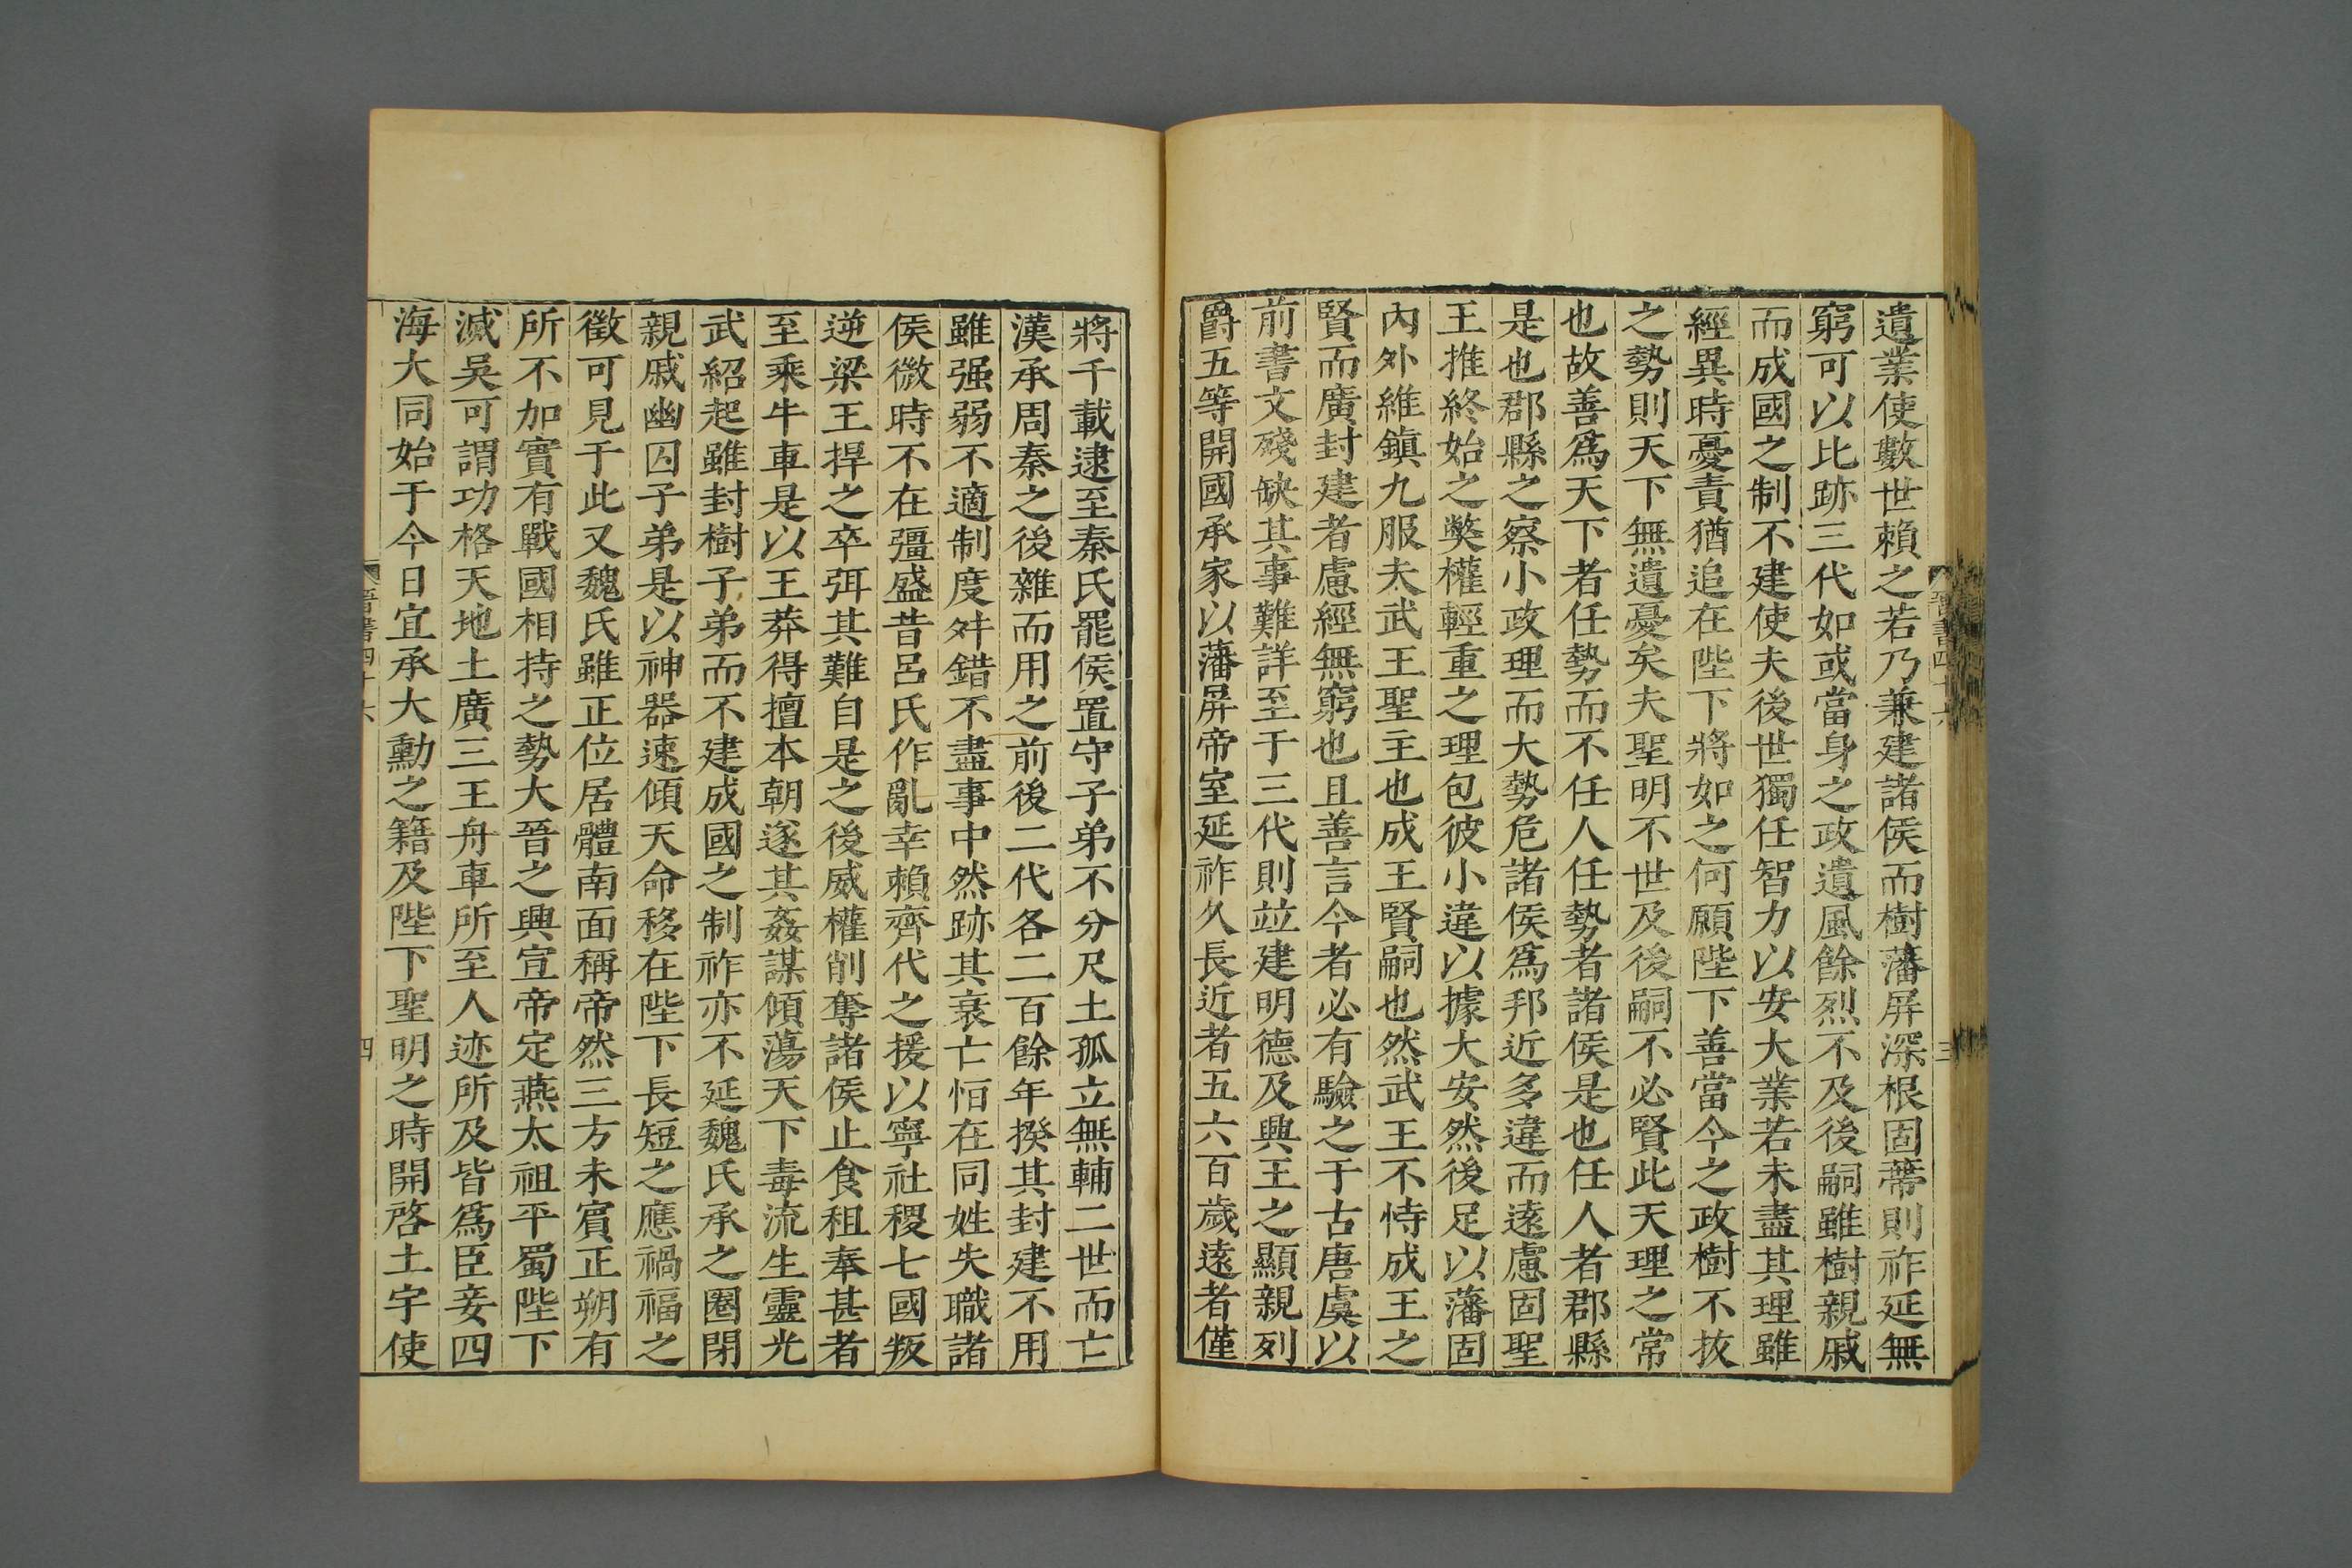 遺業使數世賴之若乃兼建諸侯而樹藩屏深根固蔕則祚延無
窮可以比跡三代如或當身之政遺風餘烈不及後嗣雖樹親戚
而成國之制不建使夫後世獨任智力以安大業若未盡其理雖
經異時憂責猶追在陛下將如之何願陛下善當今之政樹不拔
之勢則天下無遺憂矣夫聖明不世及後嗣不必賢此天理之常
也故善爲天下者任勢而不任人任勢者諸侯是也任人者郡縣
是也郡縣之察小政理而大勢危諸侯爲邦近多違而遠慮固聖
王推終始之獘權輕重之理包彼小違以據大安然後足以藩固
內外維鎭九服夫武王聖主也成王賢嗣也然武王不恃成王之
賢而廣封建者慮經無窮也且善言今者必有驗之于古唐虞以
前書文殘缺其事難詳至于三代則竝建明德及興王之顯親列
爵五等開國承家以藩屏帝室延祚久長近者五六百歲遠者僅
將千載逮至秦氏罷侯置守子弟不分尺土孤立無輔二世而亡
漢承周秦之後雜而用之前後二代各二百餘年揆其封建不用
雖强弱不適制度舛錯不盡事中然跡其衰亡恒在同姓失職諸
侯微時不在彊盛昔呂氏作亂幸賴齊代之援以寧社稷七國叛
逆梁王捍之卒弭其難自是之後威權削奪諸侯止食租奉甚者
至乘牛車是以王莽得擅本朝遂其姦謀傾蕩天下毒流生靈光
武紹起雖封樹子弟而不建成國之制祚亦不延魏氏承之圈閉
親戚幽囚子弟是以神器速傾天命移在陛下長短之應禍福之
徵可見于此又魏氏雖正位居體南面稱帝然三方未賓正朔有
所不加實有戰國相持之勢大晉之興宣帝定燕太祖平蜀陛下
滅吳可謂功格天地土廣三王舟車所至人迹所及皆爲臣妾四
海大同始于今日宜承大勳之籍及陛下聖明之時開啓土宇使
晉書四十六
四